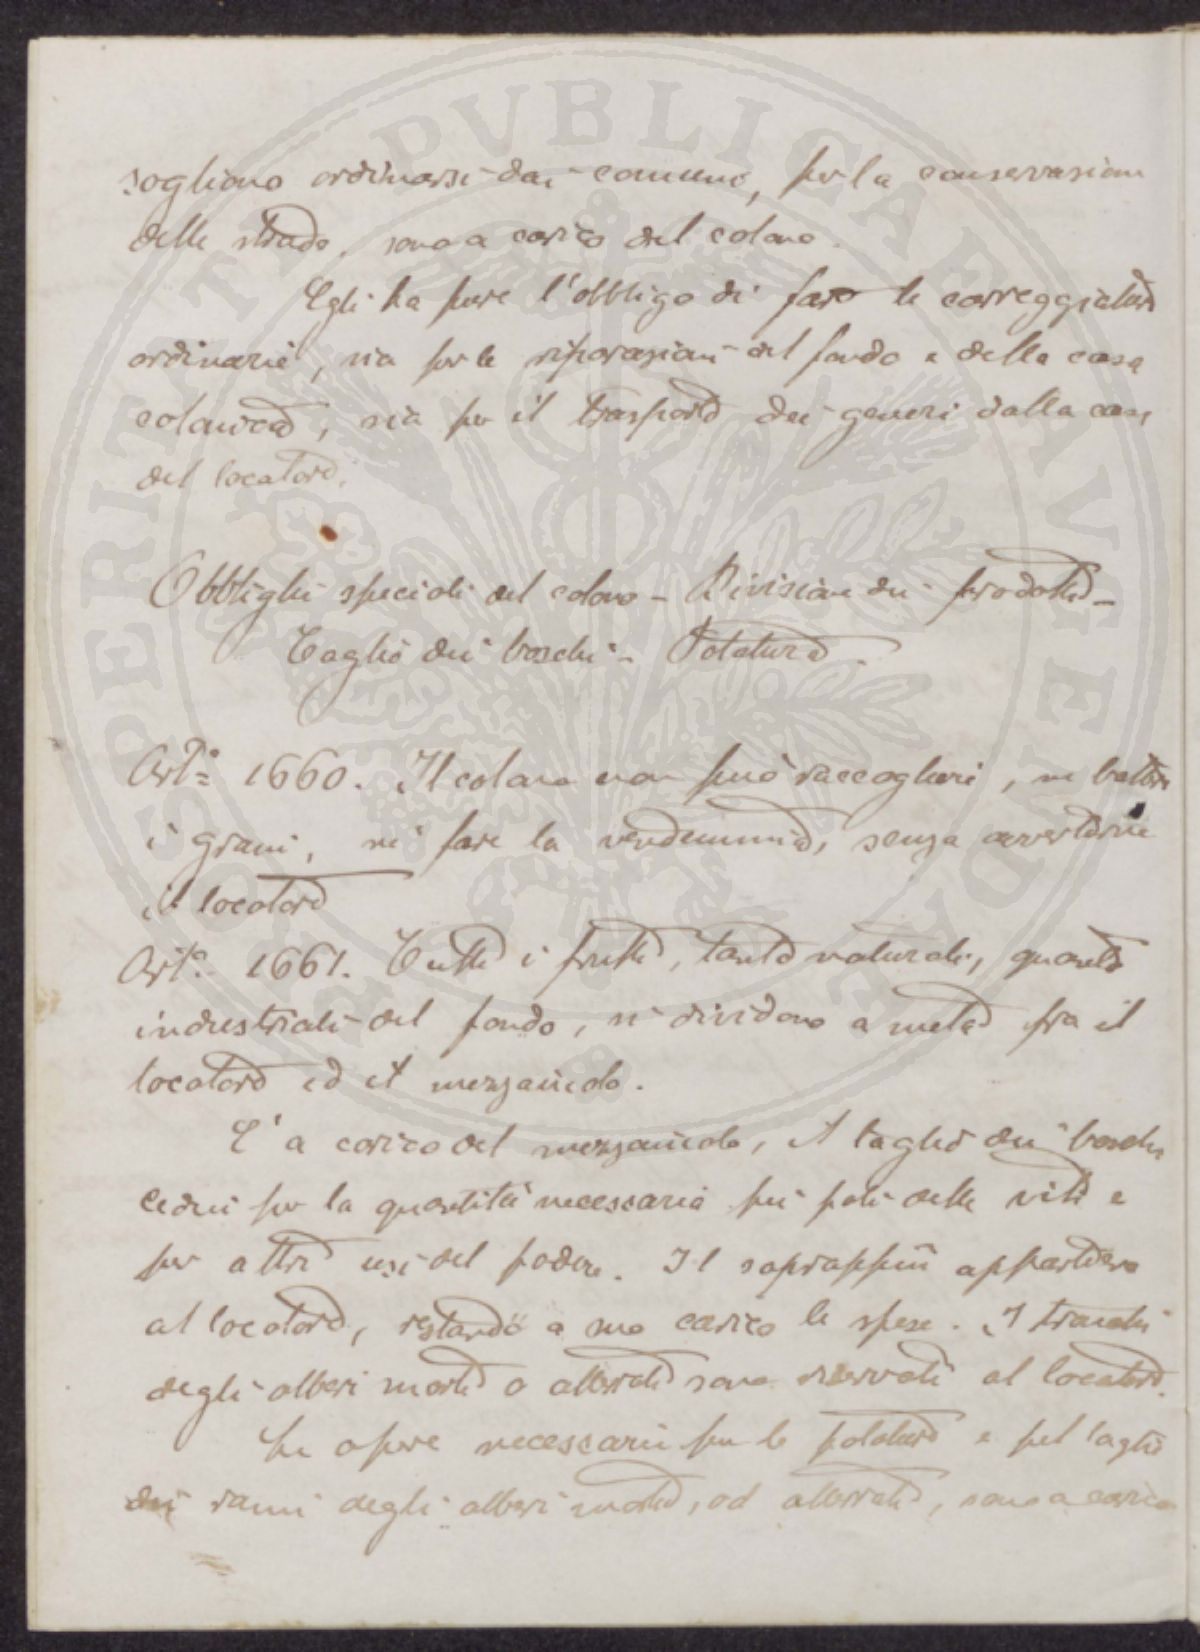 sogliono ordinarsi dai comuni, per la conservazione
delle strade, sono a carico del colono.
Egli ha pure l'obbligo di fare le carreggiature
ordinarie, sia per le riparazioni del fondo e della casa
colonica, sia per il trasporto dei generi dalla casa
del locatore.
Obblighi speciali del colono - Divisione dei prodotti -
Taglio dei boschi - Potatura.
Art.º 1660. Il colono non può raccogliere, ne battere
i grani, ne fare la vendemmia, senza avvertirne
il locatore
Art.º 1661. Tutti i frutti, tanto naturali, quanto
industriali del fondo, si dividono a metà fra il
locatore ed il mezzaiuolo.
E' a carico del mezzaiuolo, il taglio dei boschi
cedui per la quantità necessaria pei pali delle viti e
per altri usi del podere. Il soprappiù appartiene
al locatore, restando a suo carico le spese. I tronchi
degli alberi morti o atterrati sono riservati al locatore.
Le opere necessarie per le potature e pel taglio
dei rami degli alberi morti, od atterrati, sono a carico
PROSPERITATI PVBLICAE AVGENDAE